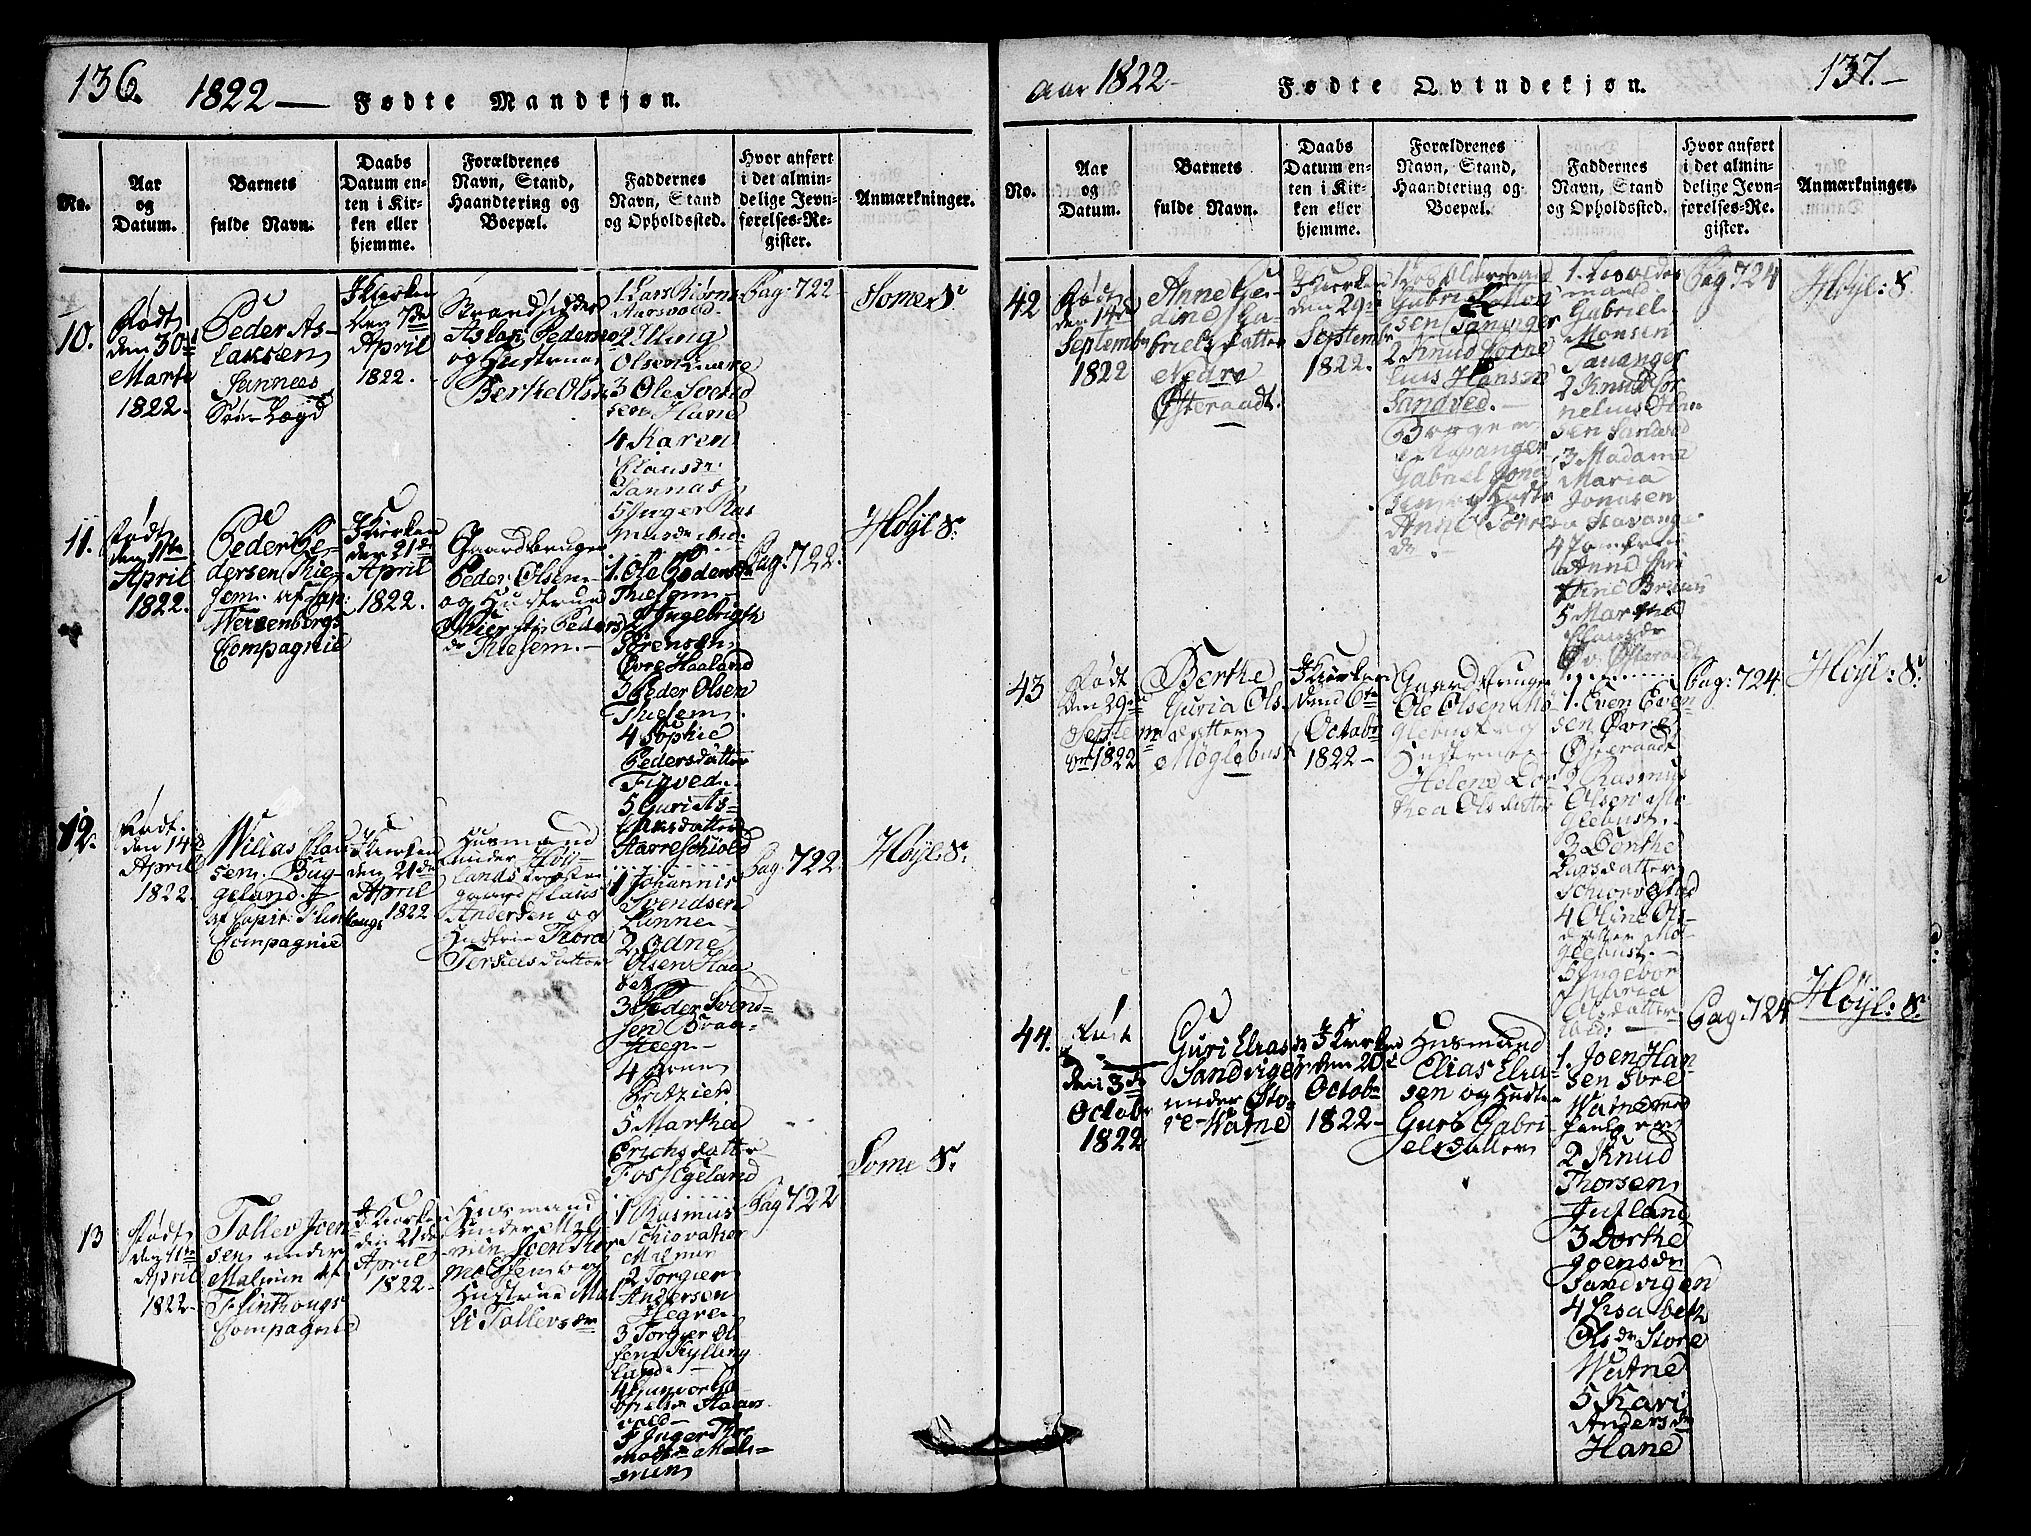 136.
1822 — Fødte Mandkjøn.
No.
Aar
og
Datum.
Barnets
fulde Navn.
Daabs
Datum en-
ten i Kir-
ken eller
hjemme.
Forældrenes
Navn, Stand,
Haandtering og
Boepæl.
Faddernes
Navn, Stand
og Opholdssted.
Hvor anført
i det almin-
delige Jevn-
førelses-Re-
gister.
Anmærkninger.
10.
Født
den 30te
Marti
1822.
Peder As-
laksen
Sannees
Søre Lægd
I Kirken
den 7de
April
1822.
Strandsidder
Aslak Peders
og Hustrue
Berthe Olsdr
1 Lars Biørns
Aarsvold
2
Olsen
3 Ole Svend
sen Hane
4 Karen
Clausdr
Sannas
5 Inger Ras
musdr ibid.
Pag: 722
Some S:
11.
Født
den 11te
April
1822.
Peder Pe-
dersen Thie-
sem. af Cap:
Wersenborgs
Compagnie
I Kirken
den 21de
April
1822.
Gaardbruger
Peder Olsen
og Hustrue
Peders
dr Thiesem.
1. Ole Pedersen
Thiesem
2 Ingebrigth
Sørensen
Øvre Haaland
3 Peder Olsen
Thiesem
4 Sophie
Pedersdatter
Figved
5 Guri As-
laksdatter
Pag: 722.
Høyl: S:
12.
Født
den 14de
April
1822
Willas Clau
sen. Bug-
geland.
af Capit: Flint
houg:
Compagnie
I Kirken
den 21de
April
1822
Husmand
under Høy-
lands Præste
gaard Claus
Andersen og
Hustrue Thora
Terkielsdatter
1 Johannis
Svendsen
Lunne
2. Odne
Olsen
3 Peder Svend-
sen
4 Arne
5 Martha
Erichsdatter
Foss Egeland
Pag: 722.
Høyl: S:
13
Født
den 11te
April
1822
Tollev Joen
sen under
Malmin af
Flinthougs
Compagnie
I Kirken
den 21de
April
1822
Husmand
under Mal-
min Joen Thor
modsen og
Hustrue Mal
li Tollevsdr
1 Rasmus
Malmin
2 Torgier
Andersen
Hegre
3 Torgier Ol
sen Kylling
land
4 Gunvor
5 Inger Thor
modsdr Mal-
min
Pag 722
Some S:
137.
Aar 1822 Fødte Qvindekjøn.
No.
Aar
og
Datum.
Barnets
fulde Navn.
Daabs
Datum en-
ten i Kir-
ken eller
hjemme.
Forældrenes
Navn, Stand,
Haandtering og
Boepæl.
Faddernes
Navn, Stand
og Opholdssted.
Hvor anført
i det almin-
delige Jevn-
førelses-Re-
gister.
Anmærkninger.
42
Født
den 14de
Septembr
1822
Anne Ge-
dine Ga-
briels datter
Nedre
Østeraadt.
I Kirken
den 29de
Septembr
1822.
sen Sandviger
2 Knud Corne
lius Hansen
Sandved.
Borger
i Stavanger
Gabriel Jona
sen og Hustr
Anne Sørens
dr.
Gabriel
Monsen
Stavanger
2 Knud Cor
nelius Han
sen Sandved
3 Madame
Maria
Jonasen
Stavanger
4
Anne
5 Marthe
Clausdr
N: Østeraadt
Pag 724
Høyl: S:
43
Født
den 29de
Septem
br 1822
Berthe
Guria Ols
datter
Møglebust
I Kirken
den 6te
Octobr
1822
Gaardbruger
Ole Olsen Mø
glebust og
Hustrue
Helene Dor
thea Olsdatter
1. Even Even-
sen Øvre
Østeraadt
2 Rasmus
Olsen Mø
glebust.
3 Dorthe
Larsdatter
4 Oline Ols
datter Mø-
glebust.
5 Ingebor
Maria
Olsdatter
ibid:
Pag: 724.
Høyl: S:
44.
Født
den 3de
Octobr
1822
Guri Eliasdr
Sandvigen
under Sto-
re-Watne
I Kirken
den 20de
Octobr
1822
Husmand
Elias Elia-
sen og Hustru
Guro Gabri-
elsdatter
1. Joen Han-
sen Store
Watne
2 Knud
Thorsen
Jutland
3 Dorthe
Joensdr
Sandvigen
4 Lisabeth
Olsdr Store
Watne
5 Kari
Andersdr
Hane
Pag: 724
Høyl: S: